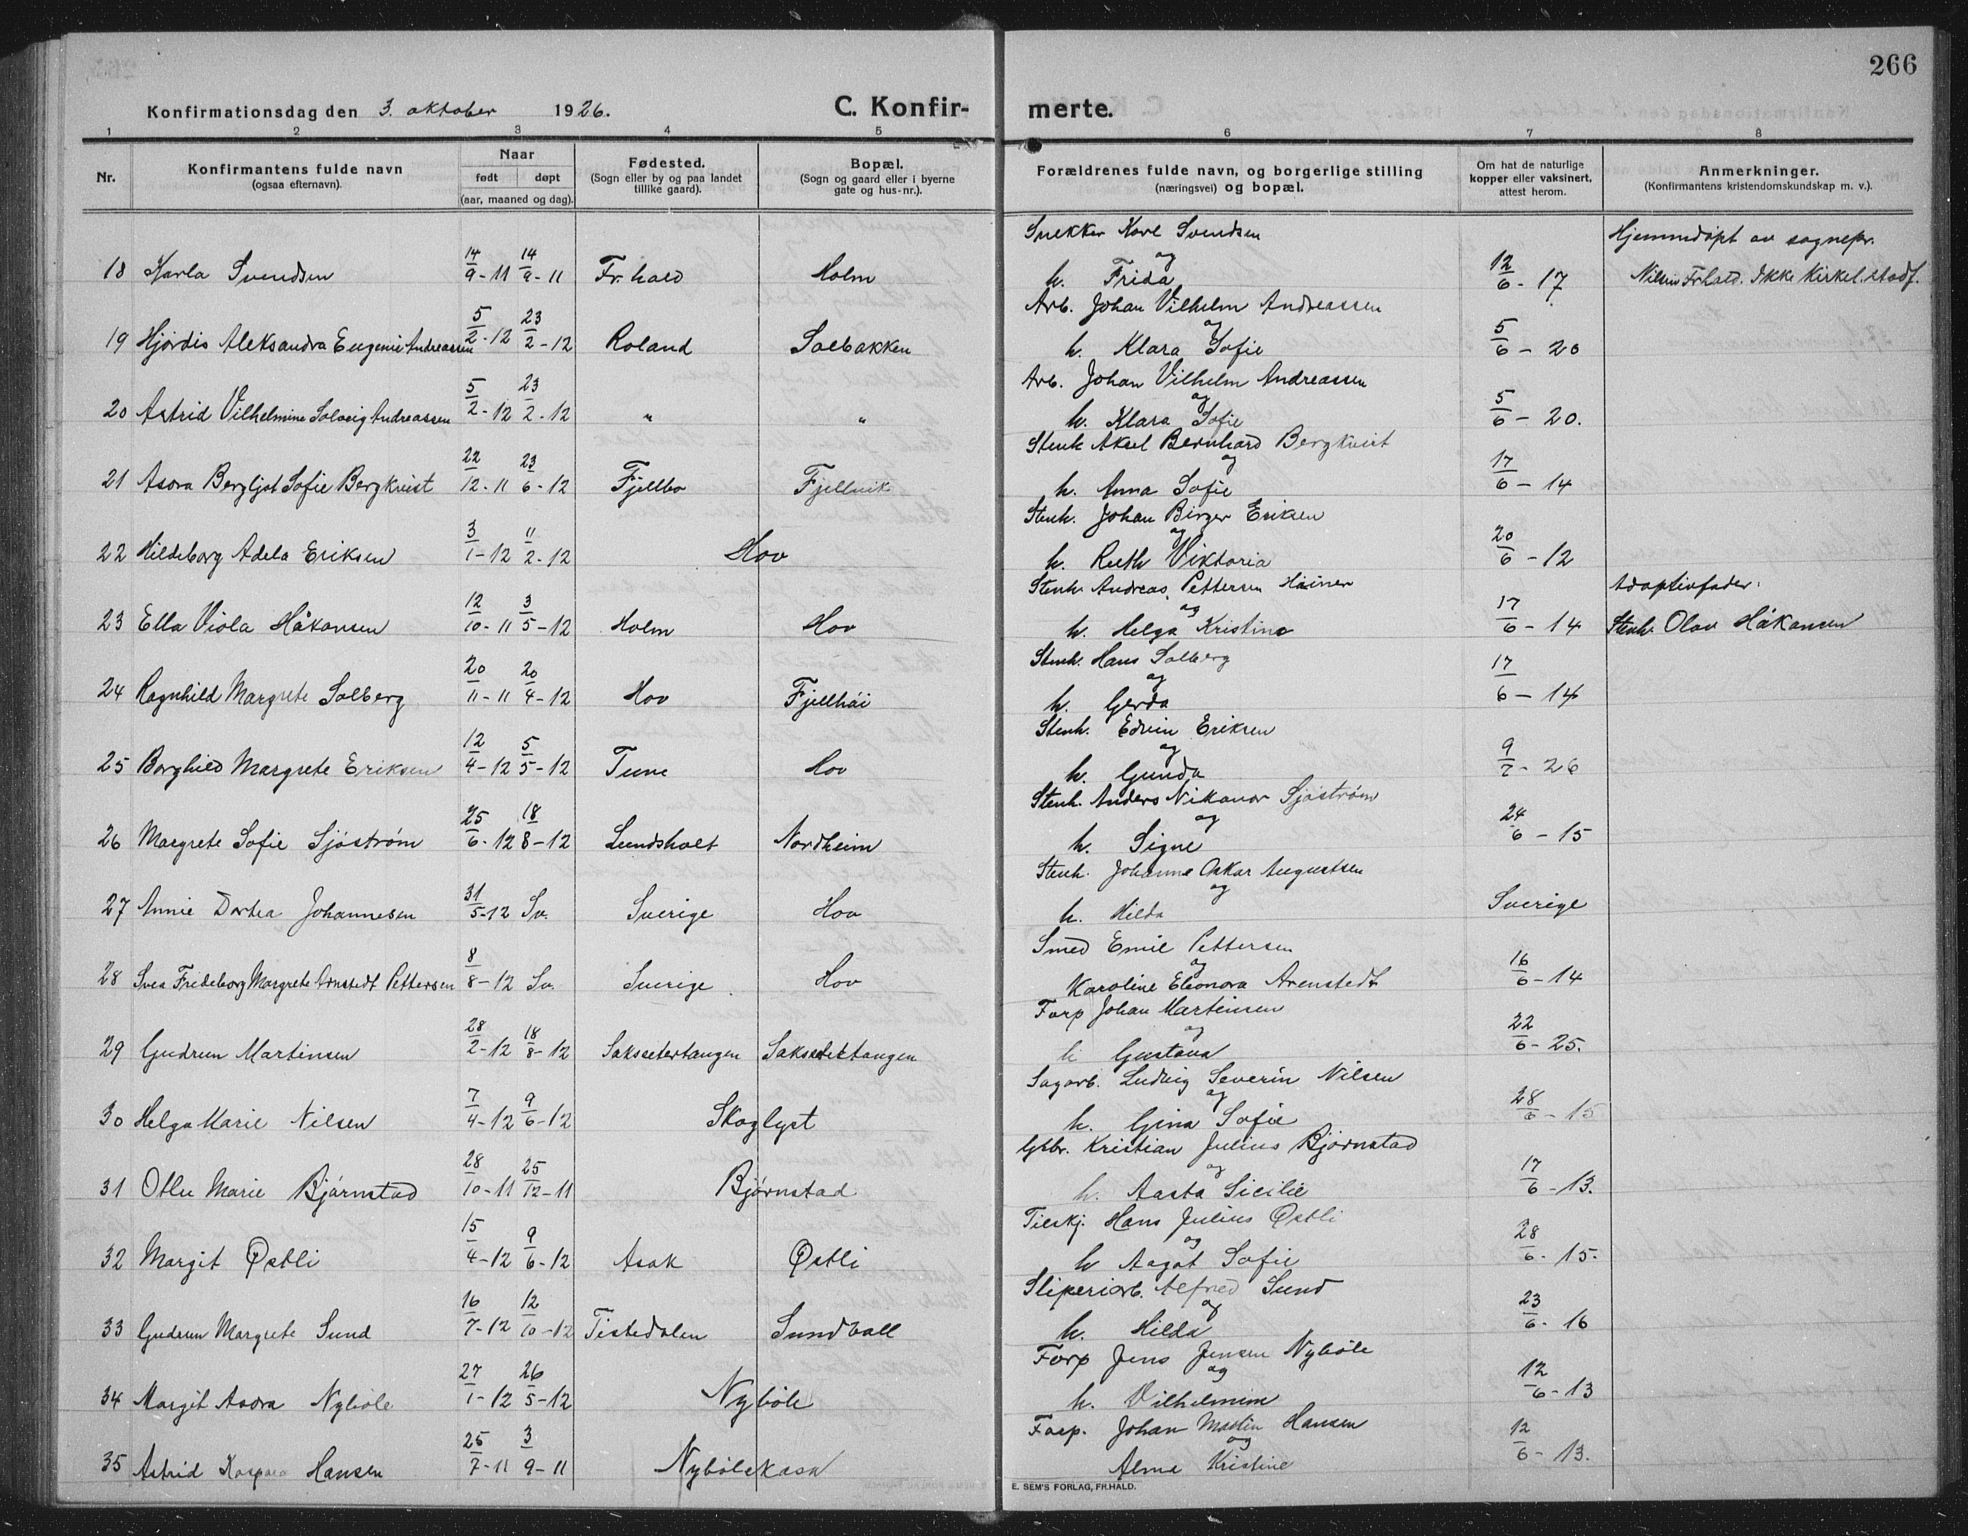 266
Konfirmationsdag den 3. oktober 1926. C. Konfir- merte.
1 2 3 4 5 6 7 8
Nr. Konfirmantens fulde navn (ogsaa efternavn). Naar født døpt (aar, maaned og dag). Fødested. (Sogn eller by og paa landet tillike gaard). Bopæl. (Sogn og gaard eller i byerne gate og hus-nr.). Forældrenes fulde navn, og borgerlige stilling (næringsvei) og bopæl. Om hat de naturlige kopper eller vaksinert, attest herom. Anmerkninger. (Konfirmantens kristendomskundskap m. v.).
Snekker Karl Svendsen Hjemmedøpt av sognepr.
og
18 Karla Svendsen 14/9-11 14/9-11 Fr.hald Holm h. Frida 12/6-17 Nilsen Frhald. Ikke kirkel. stadf.
Arb. Johan Vilhelm Andreassen
og
19 Hjørdis Aleksandra Eugenie Andreassen 5/2-12 23/2-12 Roland Solbakken h. Klara Sofie 5/6-20
Arb. Johan Vilhelm Andreassen
og
20 Astrid Vilhelmine Solveig Andreassen 5/2-12 23/2-12 " " h. Klara Sofie 5/6-20.
Stenh. Aksel Bernhard Bergkvist
og
21 Asora Bergljot Sofie Bergkvist 22/12-11 23/6-12 Fjellbo Fjellvik h. Anna Sofie 17/6-14
Stenh. Johan Birger Eriksen
og
22 Hildeborg Adela Eriksen 3/1-12 11/2-12 Hov h. Ruth Viktoria 20/6-12
Stenh. Andreas Pettersen Heiner Adoptivfader:
og
23 Ella Viola Håkansen 12/10-11 3/5-12 Holm Hov h. Helga Kristine 17/6-14 Stenh. Olav Håkansen
Stenh. Hans Solberg
og
24 Ragnhild Margrete Solberg 20/11-11 20/4-12 Hov Fjellhøi h. Gerda 17/6-14
Stenh. Edvin Eriksen
og
25 Borghild Margrete Eriksen 12/4-12 5/5-12 Tune Hov h. Gunda 9/7-26
Stenh. Anders Nikanor Sjøstrøm
og
26 Margrete Sofie Sjøstrøm 25/6-12 18/8-12 Lundsholt Nordheim h. Signe 24/6-15
Stenh. Johanne Oskar Augustsen
og
27 Annie Dortea Johannesen 31/5-12 Sv. Sverige Hov h. Hilda Sverige
Smed Emil Pettersen
og
28 Svea Frideborg Margrete Arnstedt Pettersen 8/8-12 Sv. Sverige Hov Karoline Eleonora Arenstedt 16/6-14
Forp Johan Martinsen
og
29 Gudrun Martinsen 28/2-12 18/8-12 Saksetertangen Saksetertangen h Gustava 22/6-25.
Sagarb. Ludvig Severin Nilsen
og
30 Helga Marie Nilsen 7/4-12 9/6-12 Skoglyst h. Gina Sofie 28/6-15
Gbr. Kristian Julius Bjørnstad
og
31 Otlu Marie Bjørnstad 28/10-11 25/12-11 Bjørnstad h. Aasta Sicilie 17/6-13.
Tilskj. Hans Julius Østli
og
32 Margit Østli 15/4-12 9/6-12 Asak Østli h Aagot Sofie 28/6-15.
Sliperiarb. Alfred Sund
og
33 Gudrun Margrete Sund 16/7-12 12/10-12 Tistedalen Sundvall h. Hilda 23/6-16
Forp Jens Jensen Nybøle
og
34 Margit Asora Nybøle 27/1-12 26/5-12 Nybøle h. Vilhelmine 12/6-13
Forp. Johan Martin Hansen
og
35 Astrid Kaspara Hansen 25/7-11 3/9-11 Nybølekasa Alma Kristine 12/6-13.
E. SEM'S FORLAG, FR.HALD.